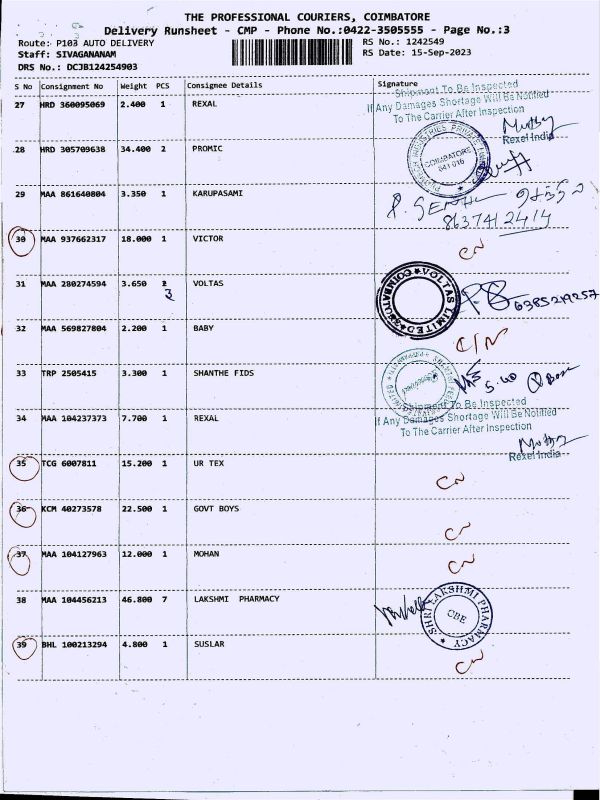 THE PROFESSIONAL COURIERS, COIMBATORE
Delivery Runsheet - CMP - Phone No.:0422-3505555 - Page No.:3
Route: P103 AUTO DELIVERY
RS No.: 1242549
Staff: SIVAGANANAM
RS Date: 15-Sep-2023
DRS No.: DCJB124254903
S No Consignment No Weight PCS Consignee Details Signature
Shipment To Be Inspected
If Any Damages Shortage Will Be Notified
To The Carrier After Inspection
27 HRD 360095069 2.400 1 REXAL
Rexel India
28 HRD 305709638 34.400 2 PROMIC
COIMBATORE
641 016
29 MAA 861640804 3.350 1 KARUPASAMI
8637412414
30 MAA 937662317 18.000 1 VICTOR
CN
31 MAA 280274594 3.650 3 VOLTAS
VOLTAS LIMITED COIMBATORE
6385219257
32 MAA 569827804 2.200 1 BABY
C/N
33 TRP 2505415 3.300 1 SHANTHE FIDS
Shipment To Be Inspected
If Any Damages Shortage Will Be Notified
To The Carrier After Inspection
34 MAA 104237373 7.700 1 REXAL
Rexel India
35 TCG 6007811 15.200 1 UR TEX
CN
36 KCM 40273578 22.500 1 GOVT BOYS
CN
37 MAA 104127963 12.000 1 MOHAN
CN
38 MAA 104456213 46.800 7 LAKSHMI PHARMACY
SHRI LAKSHMI PHARMACY
CBE
39 BHL 100213294 4.800 1 SUSLAR
CN